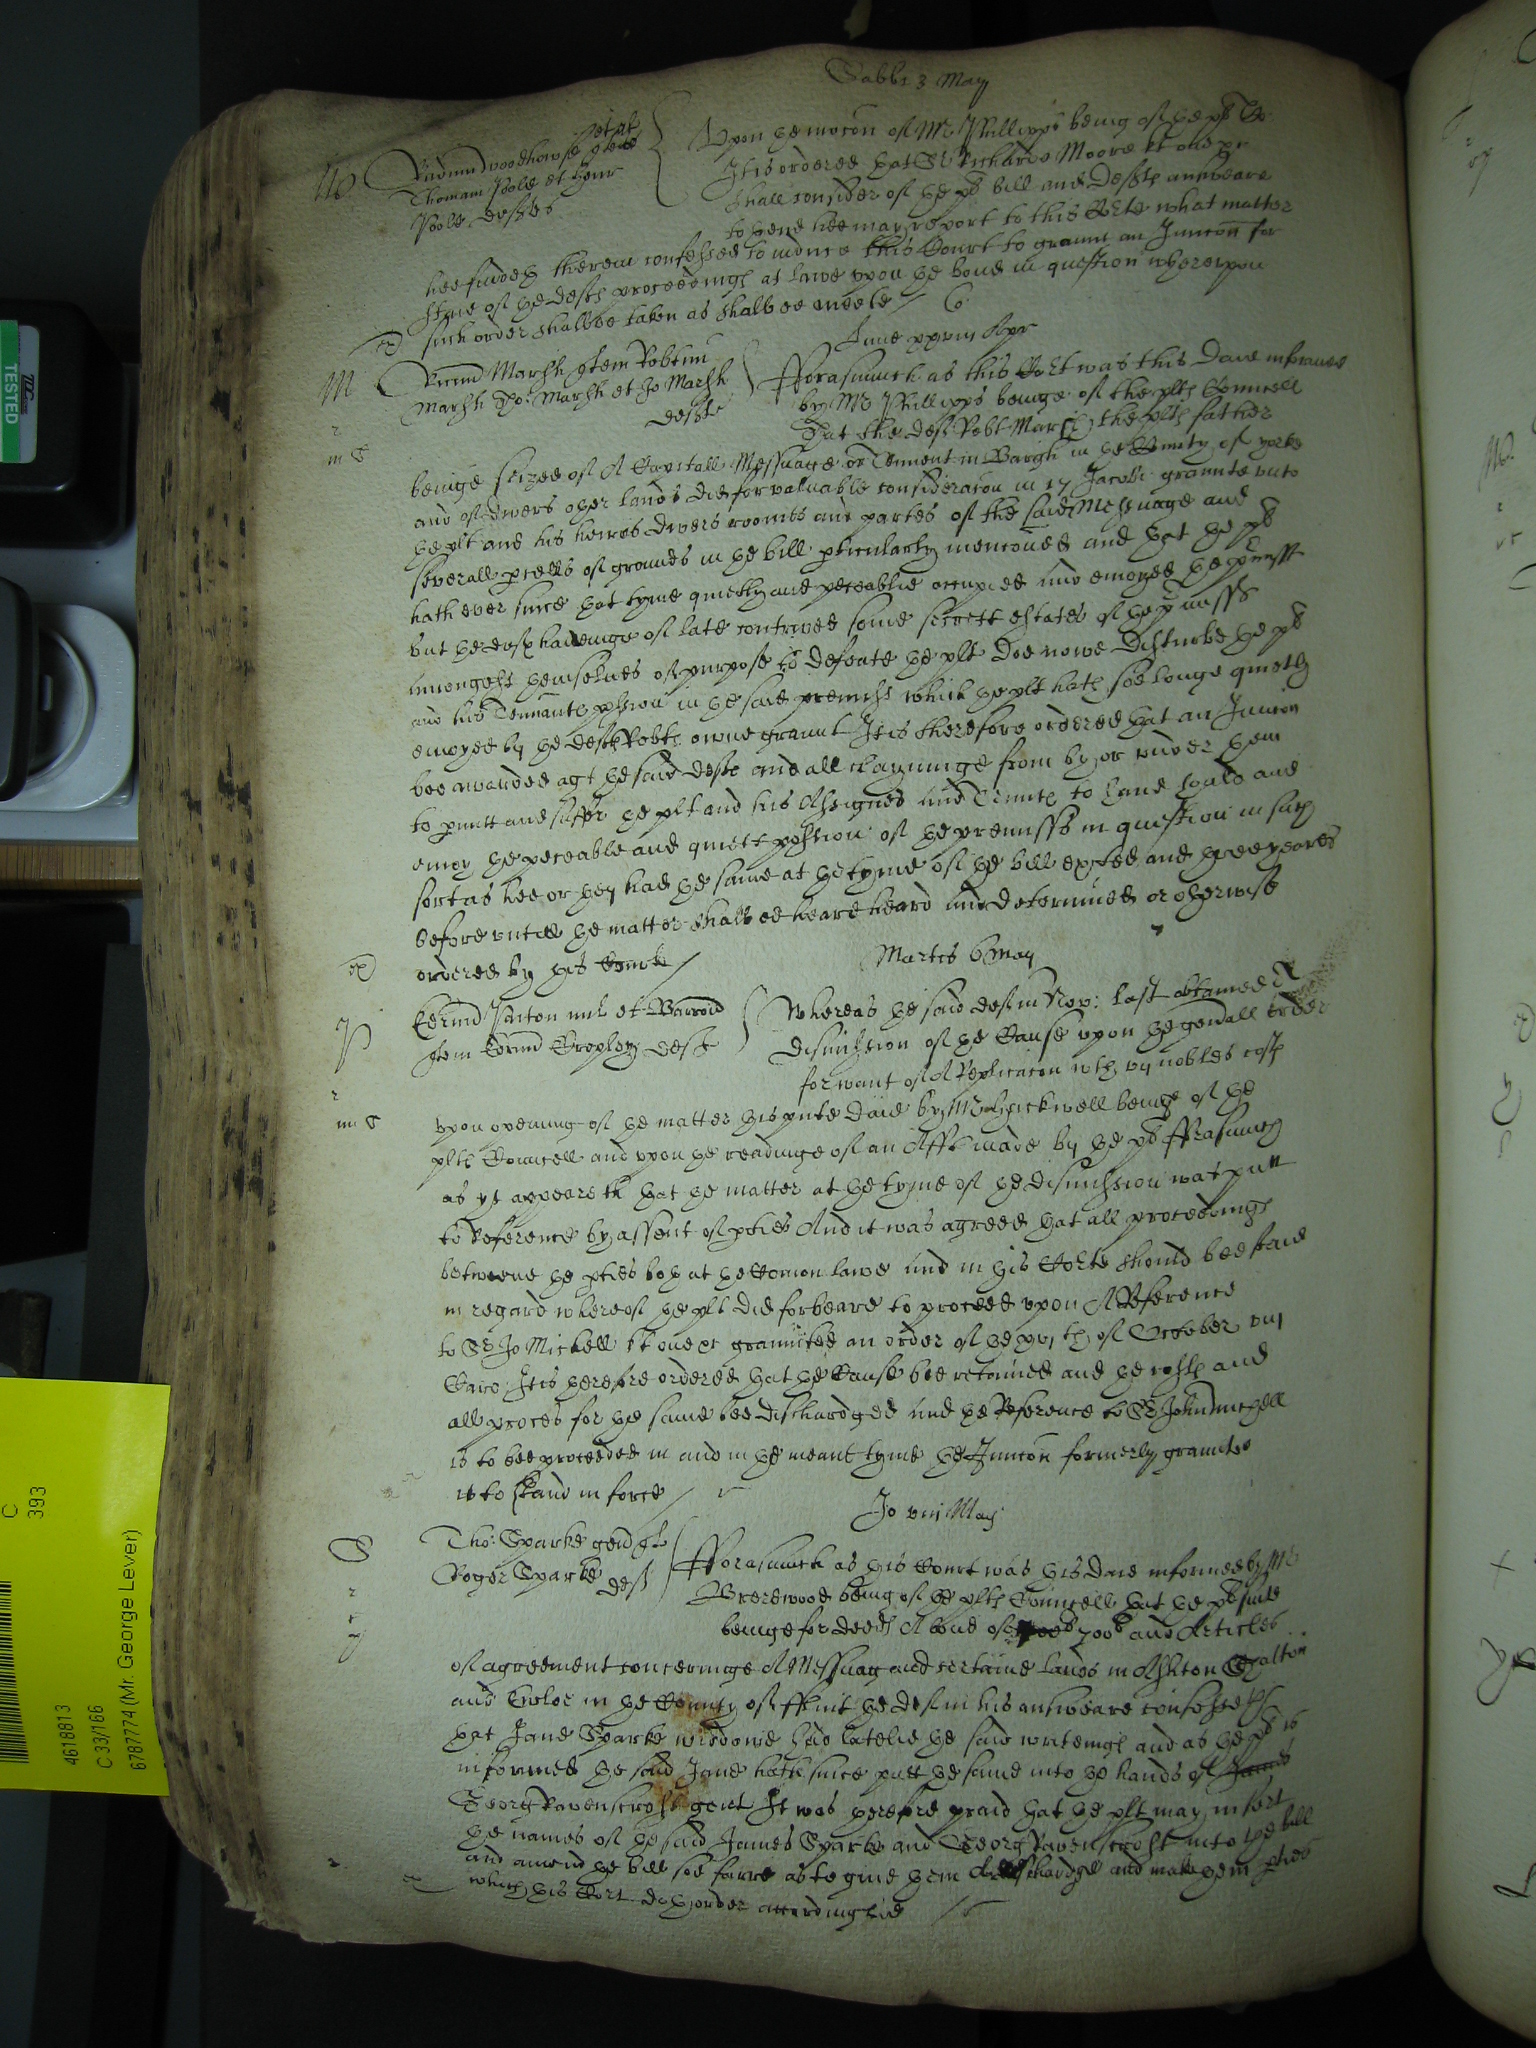 Sabbi 3 May
W
Edmund woodhowse et al
Thomam Poole et
Poole defts
Upon the mocon of Mr Phillipps being of the plt Co
It is ordered that Sr Richard Moore kt one &c
shall consider of the plt bill and defts answeare
to thend hee may report to this Corte what matter
hee findeth therein confessed to induce this Court to graunt an Iniuncon for
staie of the defts proceedings at lawe upon the bond in question whereupon
such order shalbe taken as shalbee meete
Lune xxviii Apr
M
Marsh quer Robtum
Marsh Tho: Marsh et Jo Marsh
defts
Forasmuch as this Cort was this daie informed
by Mr Phillipps beinge of the plts Councell
that the deft Robt Marsh the plts father
beinge seized of A Capitall Messuage or Tenement in Bargh in the County of yorke
and of divers other lands did for valuable consideracon in 17 Jacobi graunte unto
the plt and his heires divers roomes and partes of the said Messuage and
severall pcells of grounds in the bill pticularly menconed and that the plt
hath ever since that tyme quietly and peceablie occupied and enioyed the premisses
but the defts haveinge of late contrived some secrett estates of the premisses
amongest themselves of purpose to defeate the plt doe nowe disturbe the plt
and his Tennants possion in the said premisses which the plt hath soe longe quietly
enioyed by the deft Robts owne graunt It is therefore ordered that an Iniuncon
bee awarded agt the said defts and all clayminge from by or under them
to pmitt and suffer the plt and his Assignes and Tennts to have hould and
enioy the peceable and quiett possion of the premisses in question in such
sort as hee or they had the same at the tyme of the bill exhited and three yeares
before untill the matter shalbee heard and determined or otherwise
ordered by this Courte
Martis 6 May
P
Edmund Paston mil et Barronet
quer Edmund Cropley deft
Whereas the said deft in Nov: last obtained A
dismission of the Cause upon the generall order
for want of A Replicacon with vij nobles costs
upon opening of the matter this pnte daie by Mr being of the
plts Councell and upon the readinge of an Afft made by the plt Forasmuch
as yt appeareth that the matter at the tyme of the dismission was putt
to Reference by assent of pties And it was agreed that all proceedings
betweene the pties both at the Comon lawe and in this Corte should bee staid
in regard whereof the plt did forbeare to proceed upon A Reference
to Sr Jo Michell kt one &c graunted an order of the xvjth of October
Caro It is therefore ordered that the Cause bee retained and the costs and
all proces for the same bee dischardged and the Reference to Sr John Michell
is to bee proceeded in and in the meane tyme the Iniuncon formerly graunted
is to stand in force
Jo viij May
S
Tho: Sparke gen quer
Roger Sparke deft
Forasmuch as this Court was this daie informed by Mr
Brerewood being of the plts Councell that the plts suite
beinge for deeds A bond of 700li and Articles
of agreement concerninge A Messuag and certaine lands in Ashton
and in the County of Flint the deft in his answeare confesseth
that Jane Sparke widdowe had latelie the said writeings and as the plt is
informed the said Jane hath since putt the same into the hands of James
George Ravenscroft gent It was therefore praid that the plt may insert
the names of the said James Sparke and George Ravenscroft into the bill
and amend the bill soe farre as to give them A chardge and make them pties
which this Cort doth order accordinglie
TESTED
C
393
4618813
C 33/166
6787774 (Mr. George Lever)